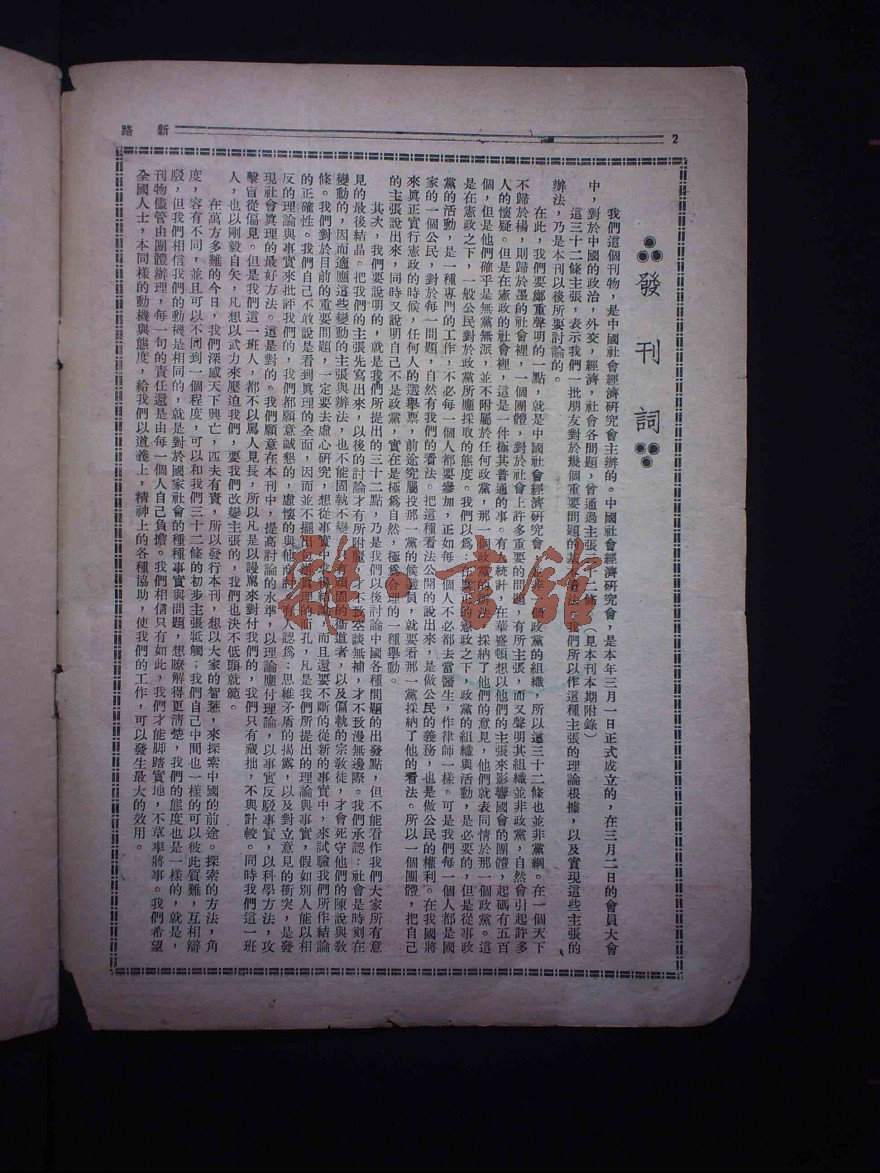 2
新路
發刊詞
我們這個刊物，是中國社會經濟硏究會主辦的。中國社會經濟硏究會，是本年三月一日正式成立的，在三月二日的會員大會
中，對於中國的政治，外交，經濟，社會各問題，曾通過主張三十二條。（見本刊本期附錄）
這三十二條主張，表示我們一批朋友對於幾個重要問題的基本看法。我們所以作這種主張的理論根據，以及實現這些主張的
辦法，乃是本刊以後所要討論的。
在此，我們要鄭重聲明的一點，就是中國社會經濟硏究會，並非一個政黨的組織，所以這三十二條也並非黨綱。在一個天下
不歸於楊，則歸於墨的社會裡，一個團體，對於社會上許多重要的問題，有所主張，而又聲明其組織並非政黨，自然會引起許多
人的懷疑。但是在憲政的社會裡，這是一件極其普通的事。有人統計，在華盛頓想以他們的主張來影響國會的團體，起碼有五百
個，但是他們確乎是無黨無派，並不附屬於任何政黨，那一個政黨的辦法，採納了他們的意見，他們就表同情於那一個政黨。這
是在憲政之下，一般公民對於政黨所應採取的態度。我們以爲，在眞正的憲政之下，政黨的組織與活動，是必要的，但是從事政
黨的活動，是一種專門的工作，不必每一個人都要參加，正如每一個人不必都去當醫生，作律師一樣。可是我們每一個人都是國
家的一個公民，對於每一問題，自然有我們的看法。把這種看法公開的說出來，是做公民的義務，也是做公民的權利。在我國將
來眞正實行憲政的時候，任何人的選舉票，前途究屬投那一黨的候選員，就要看那一黨採納了他的看法。所以一個團體，把自己
的主張說出來，同時又說明自己不是政黨，實在是極爲自然，極爲合理的一種舉動。
其次，我們要說明的，就是我們所提出的三十二點，乃是我們以後討論中國各種問題的出發點，但不能看作我們大家所有意
見的最後結晶。把我們的主張先寫出來，以後的討論才有所附麗，才不致空談無補，才不致漫無邊際。我們承認：社會是時刻在
變動的，因而適應這些變動的主張與辦法，也不能固執不變。只有頑固的衞道者，以及偏執的宗敎徒，才會死守他們的陳說與敎
條。我們對於目前的重要問題，一定要去虛心硏究，想從事實中求得結論，而且還要不斷的從新的事實中，來試驗我們所作結論
的正確性。我們自己不敢說是看到眞理的全面，因而並不擺出包辦眞理的面孔，凡是我們所提出的理論與事實，假如別人能以相
反的理論與事實來批評我們的，我們都願意誠懇的，虛懷的與他商討。有人認爲：思維矛盾的揭露，以及對立意見的衝突，是發
現社會眞理的最好方法。這是對的。我們願意在本刊中，提高討論的水準，以理論應付理論，以事實反駁事實，以科學方法，攻
擊盲從偏見。但是我們這一班人，都不以罵人見長，所以凡是以謾罵來對付我們的，我們只有藏拙，不與計較。同時我們這一班
人，也以剛毅自矢，凡想以武力來壓迫我們，要我們改變主張的，我們也決不低頭就範。
在萬方多難的今日，我們深感天下興亡，匹夫有責，所以發行本刊，想以大家的智慧，來探索中國的前途。探索的方法，角
度，容有不同，並且可以不同到一個程度，可以和我們三十二條的初步主張牴觸；我們自己中間也一樣的可以彼此質難，互相辯
駁，但我們相信我們的動機是相同的，就是對於國家社會的種種事實與問題，想瞭解得更清楚，我們的態度也是一樣的，就是，
刊物儘管由團體辦理，每一句的責任還是由每一個人自己負擔。我們相信只有如此，我們才能脚踏實地，不草率將事。我們希望
全國人士，本同樣的動機與態度，給我們以道義上，精神上的各種協助，使我們的工作，可以發生最大的效用。